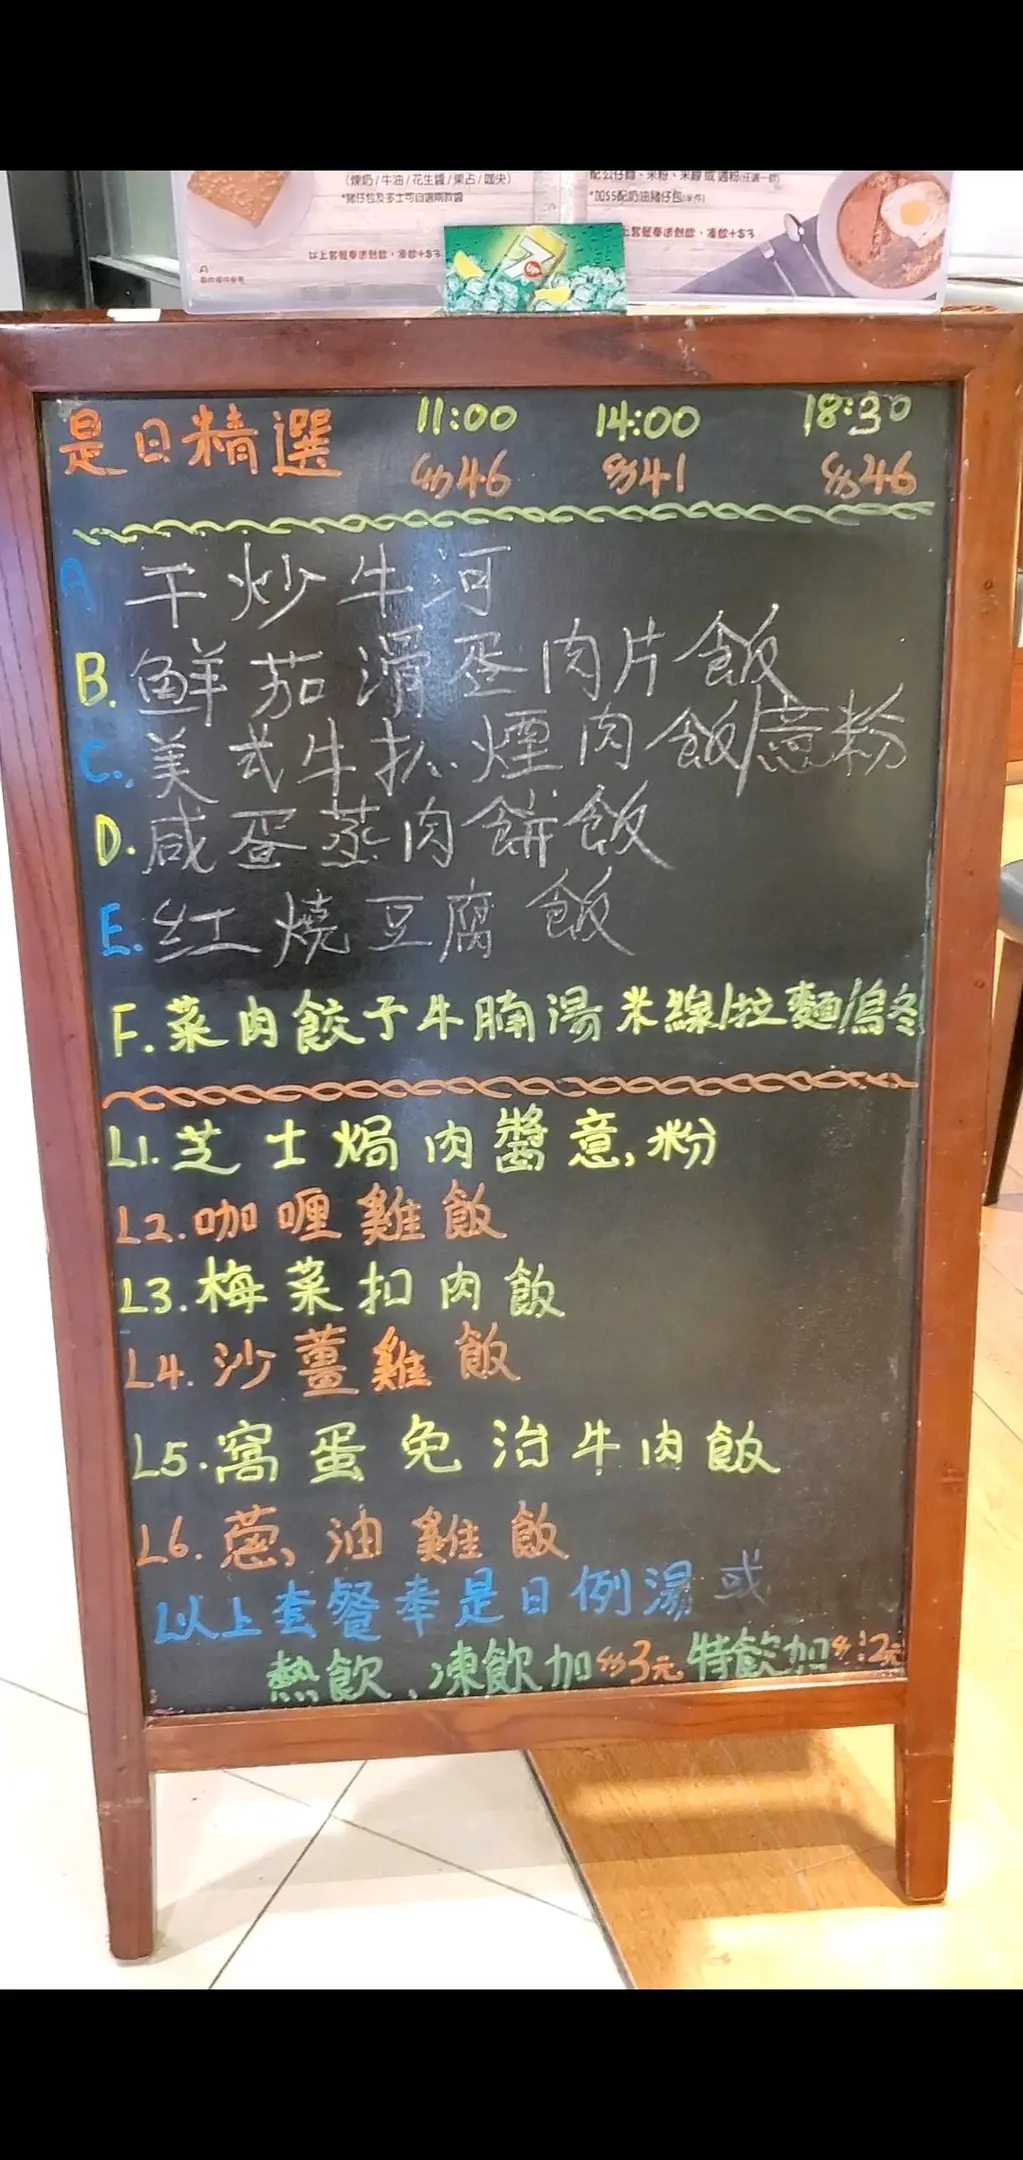 (煉奶/牛油/花生醬/果占/咖央)
*豬仔包及多士可自選兩款醬
以上套餐奉送熱飲，凍飲+$3
配公仔麵、米粉、米線或通粉(任選一款)
*加$5配奶油豬仔包(半件)
上套餐奉送熱飲，凍飲+$3
7 up
是日精選 11:00 14:00 18:30
$46 $41 $46
A 干炒牛河
B. 鲜茄滑蛋肉片飯
C. 美式牛扒煙肉飯/意粉
D. 咸蛋蒸肉餅飯
E. 红燒豆腐飯
F. 菜肉餃子牛腩湯米線/拉麵/烏冬
L1. 芝士焗肉醬意粉
L2. 咖喱雞飯
L3. 梅菜扣肉飯
L4. 沙薑雞飯
L5. 窩蛋免治牛肉飯
L6. 蔥油雞飯
以上套餐奉是日例湯或
熱飲、凍飲加$3元 特飲加